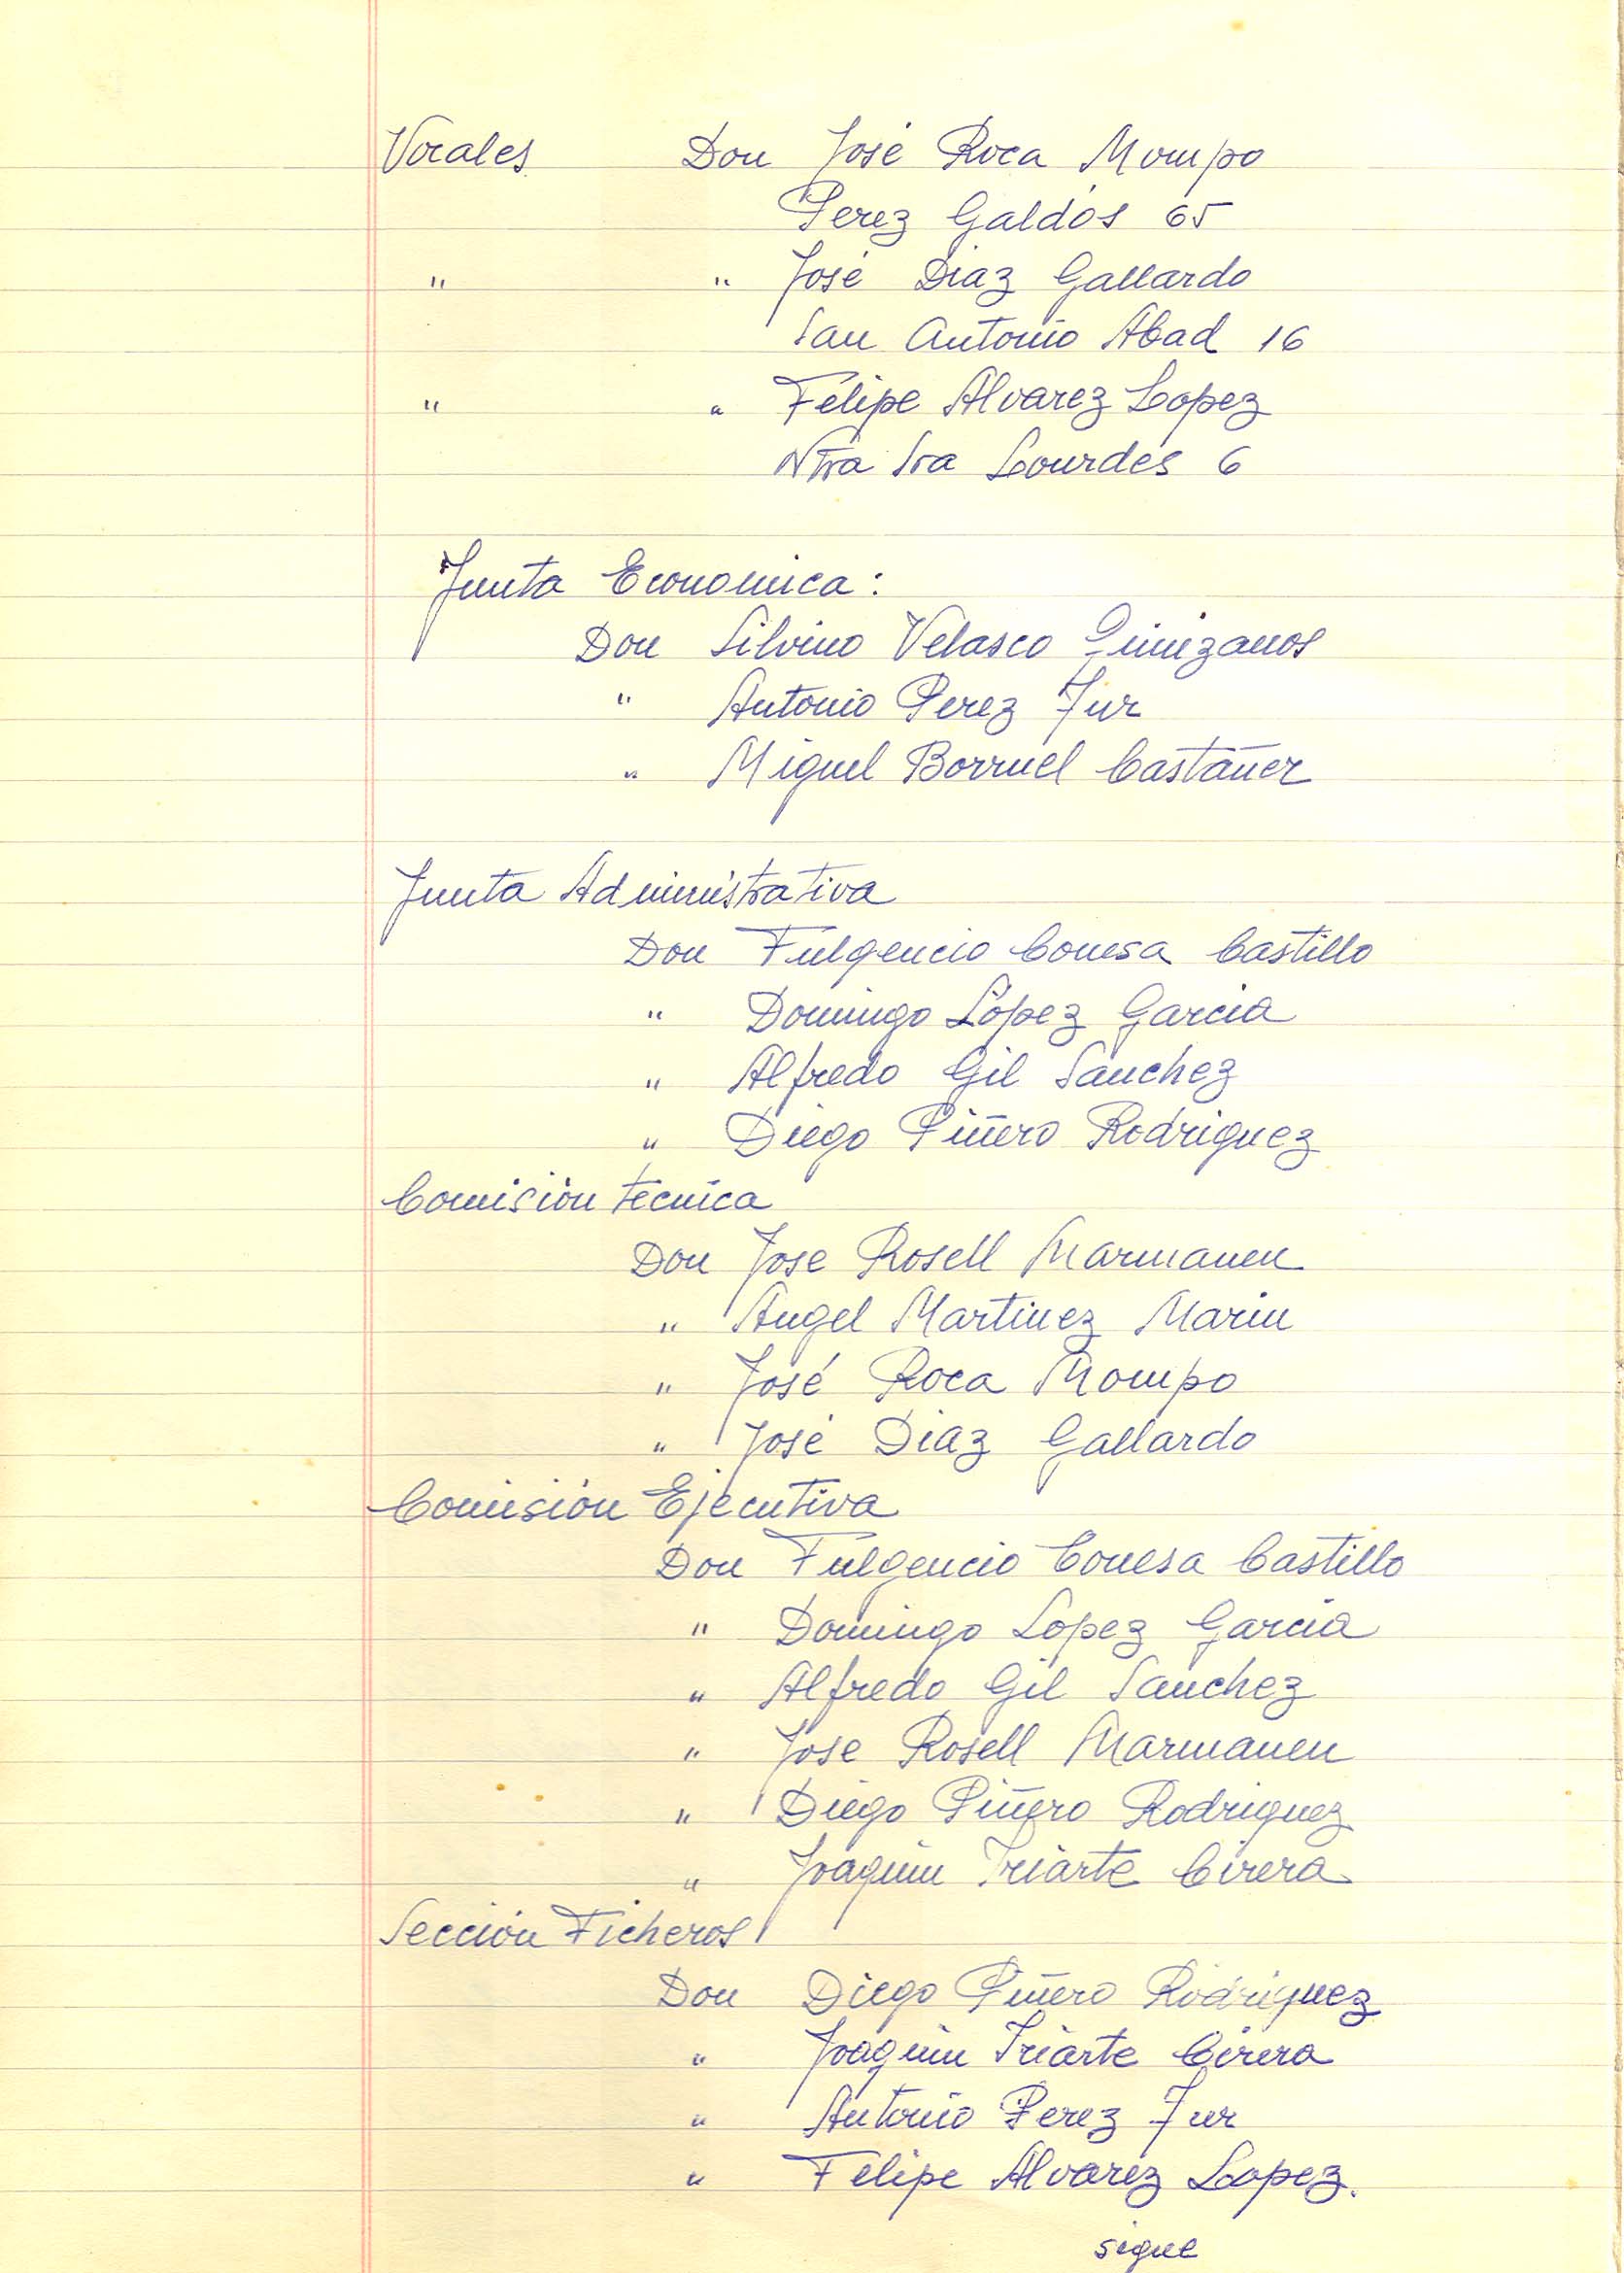 Vocales Don José Roca Mompo
Perez Galdós 65
" " José Diaz Gallardo
San Antonio Abad 16
" " Felipe Alvarez Lopez
Ntra Sra Lourdes 6
Junta Economica:
Don Silvino Velasco
" Antonio Perez Fur
" Miguel Borruel Castañer
Junta Administrativa
Don Fulgencio Conesa Castillo
" Domingo López Garcia
" Alfredo Gil Sanchez
" Diego Piñero Rodriguez
Comisión tecnica
Don Jose Rosell Marmaneu
" Angel Martinez Marin
" José Roca Mompo
" José Diaz Gallardo
Comisión Ejecutiva
Don Fulgencio Conesa Castillo
" Domingo Lopez Garcia
" Alfredo Gil Sanchez
" Jose Rosell Marmaneu
" Diego Piñero Rodriguez
" Joaquin Iriarte Cirera
Sección Ficheros
Don Diego Piñero Rodriguez
" Joaquin Iriarte Cirera
" Antonio Perez Fur
" Felipe Alvarez Lopez.
sigue